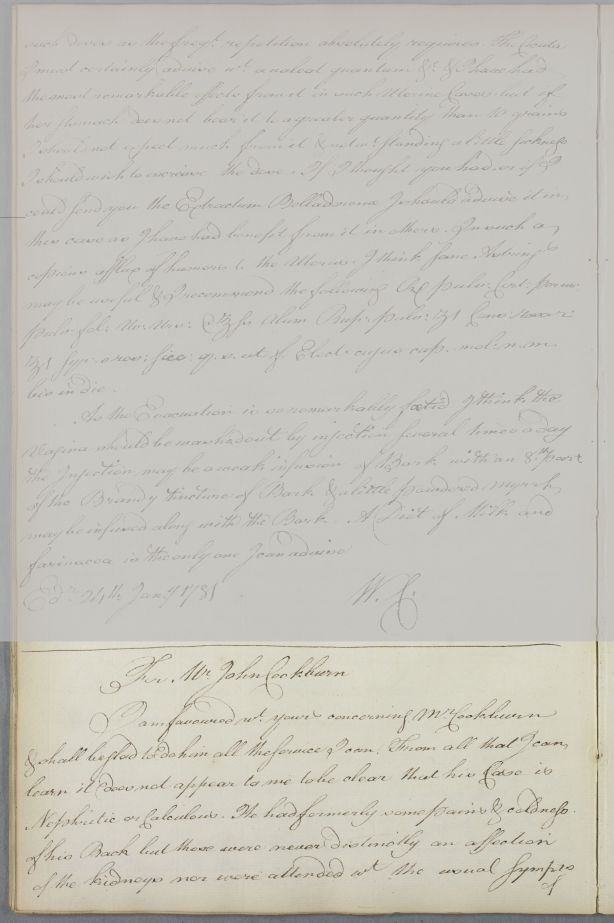 such doses as the freqt. repetition absolutely requires. The Cicuta
I must certainly advise wt. a
the most remarkable effects from it in such Uterine Cases but if
her stomach does not bear it to a greater quantity than 10 grains
I should not expect much from it & notwtstanding a little sickness
I should wish to increase the dose. If I thought you had or if I
could send you the Extractum Belladonna I should advise it in
this case as I have had benefit from it in others. In such a
copious afflux of humors to the Uterus I think some Astringts
may be useful & I recommend the following Rx Pulv: Cort: Peruv:
Pulv: fol: Uv: Urs: Alum Rup: pulv: Cons: rosar:
Syr: e ros: sicc: q.s. ut f. Elect: cujus cap. mol: n.m.
bis in die.
As the Evacuation is so remarkably fœtid I think the
Vagina should be washed out by injection several times a day
the Injection may be a weak infusion of Bark with an 8th part
of the Brandy tincture of Bark & a little powdered myrrh
may be infused along with the Bark. A Diet of Milk and
farinacea is the only one I can advise
Edr. 24th Jany 1781 W. C.
For Mr. John Cockburn
I am favoured wt. yours concerning Mr. Cockburn
& shall be glad to do him all the service I can. From all that I can
learn it does not appear to me to be clear that his Case is
Nephritic or Calculous. He had formerly some pains & coldness
of his Back but those were never distinctly an affection
of the kidneys nor were attended wt. the usual Symptoms
of